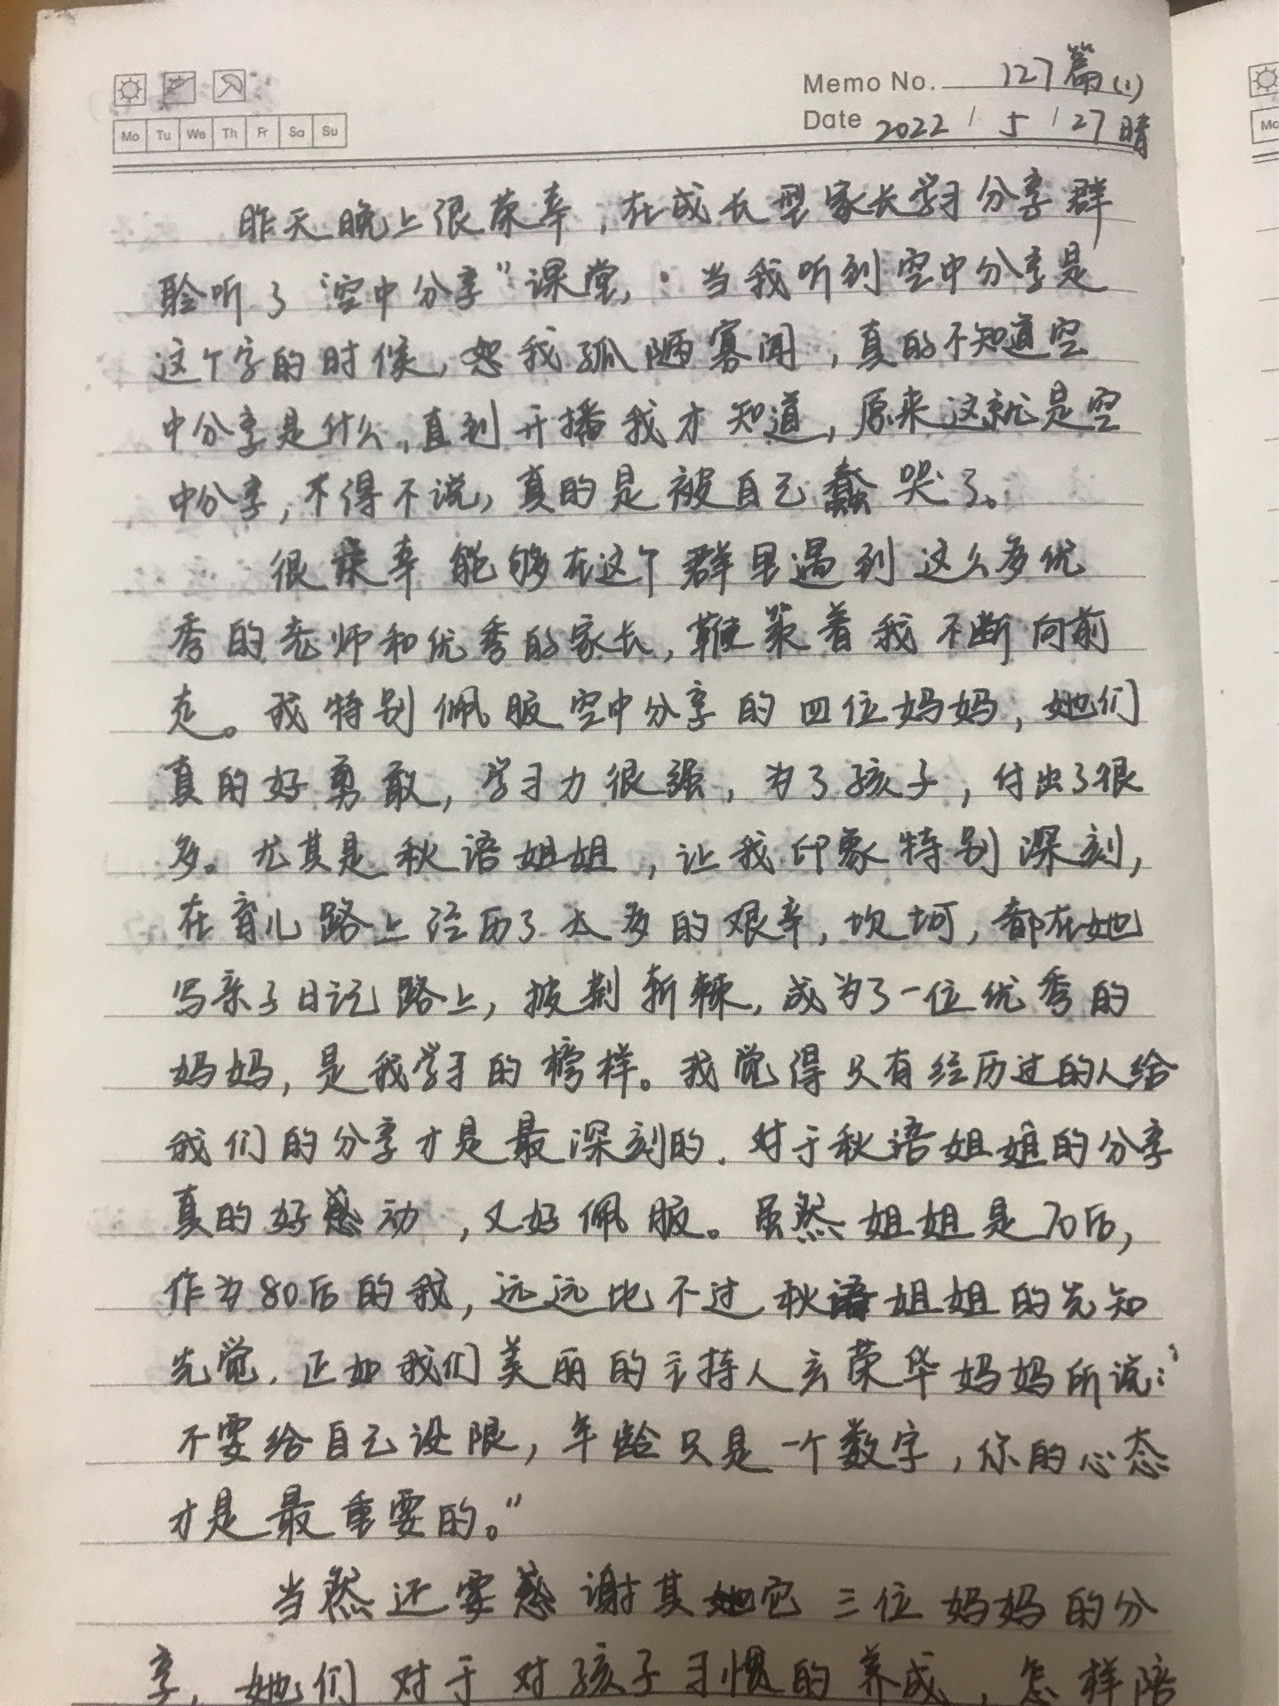 Memo No. 127篇(1)
Mo Tu We Th Fr Sa Su
Date 2022 / 5 / 27 晴
昨天晚上很荣幸，在成长型家长学习分享群
聆听了“空中分享”课堂，当我听到空中分享是
这个字的时候，恕我孤陋寡闻，真的不知道空
中分享是什么，直到开播我才知道，原来这就是空
中分享，不得不说，真的是被自己蠢哭了。
很荣幸能够在这个群里遇到这么多优
秀的老师和优秀的家长，鞭策着我不断向前
走。我特别佩服空中分享的四位妈妈，她们
真的好勇敢，学习力很强，为了孩子，付出了很
多。尤其是秋语姐姐，让我印象特别深刻，
在育儿路上经历了太多的艰辛，坎坷，都在她
写亲子日记路上，披荆斩棘，成为了一位优秀的
妈妈，是我学习的榜样。我觉得只有经历过的人给
我们的分享才是最深刻的．对于秋语姐姐的分享
真的好感动，又好佩服。虽然姐姐是70后，
作为80后的我，远远比不过秋语姐姐的先知
先觉．正如我们美丽的主持人玄荣华妈妈所说：“
不要给自己设限，年龄只是一个数字，你的心态
才是最重要的。”
当然还要感谢其它三位妈妈的分
享，她们对于对孩子习惯的养成，怎样陪